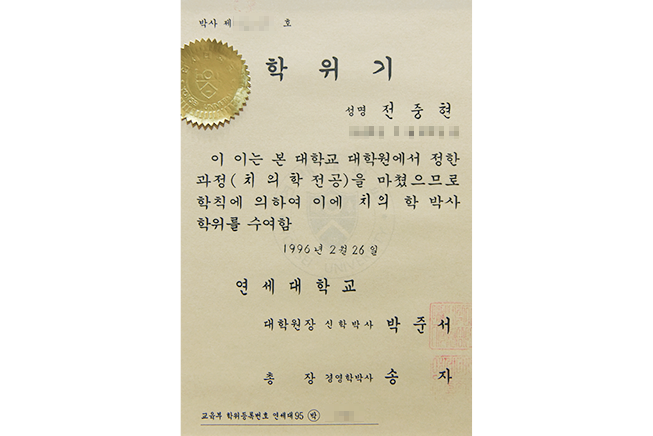 박사 제 호
학위기
성명 전중현
이 이는 본 대학교 대학원에서 정한
과정(치의학전공)을 마쳤으므로
학칙에 의하여 이에 치의학박사
학위를 수여함
1996년 2월 26일
연세대학교
대학원장 신학박사 박준서
총장 경영학박사 송자
교육부 학위등록번호 연세대95 박